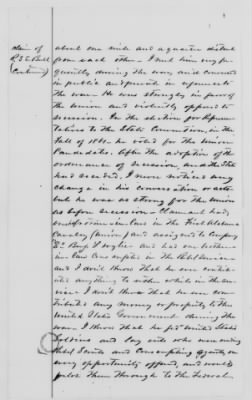 claim of
R S C Bell
(Continued)
about one mile and a quarter distant
from each other – I met him very fre
quently during the war, and conversed
in public and private in reference to
the war – He was strongly in favor of
the Union and violently opposed to
secession. In the election for Represen
tatives to the State Convention, in the
fall of 1860. he voted for the Union
Candidates. After the adoption of the
ordinance of secession, and the State
had seceded. I never noticed any
change in his conversation or acts
but he was as strong for the Union
as before secession – Claimant had,
one brother in law in the First Alabama
Cavalry (Union) and assigned to Company
and had one brother
in law conscripted in the Rebel Service
and I don't know that he ever contrib
uted anything to either while in the Ser
vice – I don't know that he ever con
tributed any money or property to the
United States Government during the
war – I know that he fed United States
Soldiers and lay outs who were evading
Rebel Scouts and Conscripting Agents, on
every opportunity offered, and would
pilot them through to the Federal